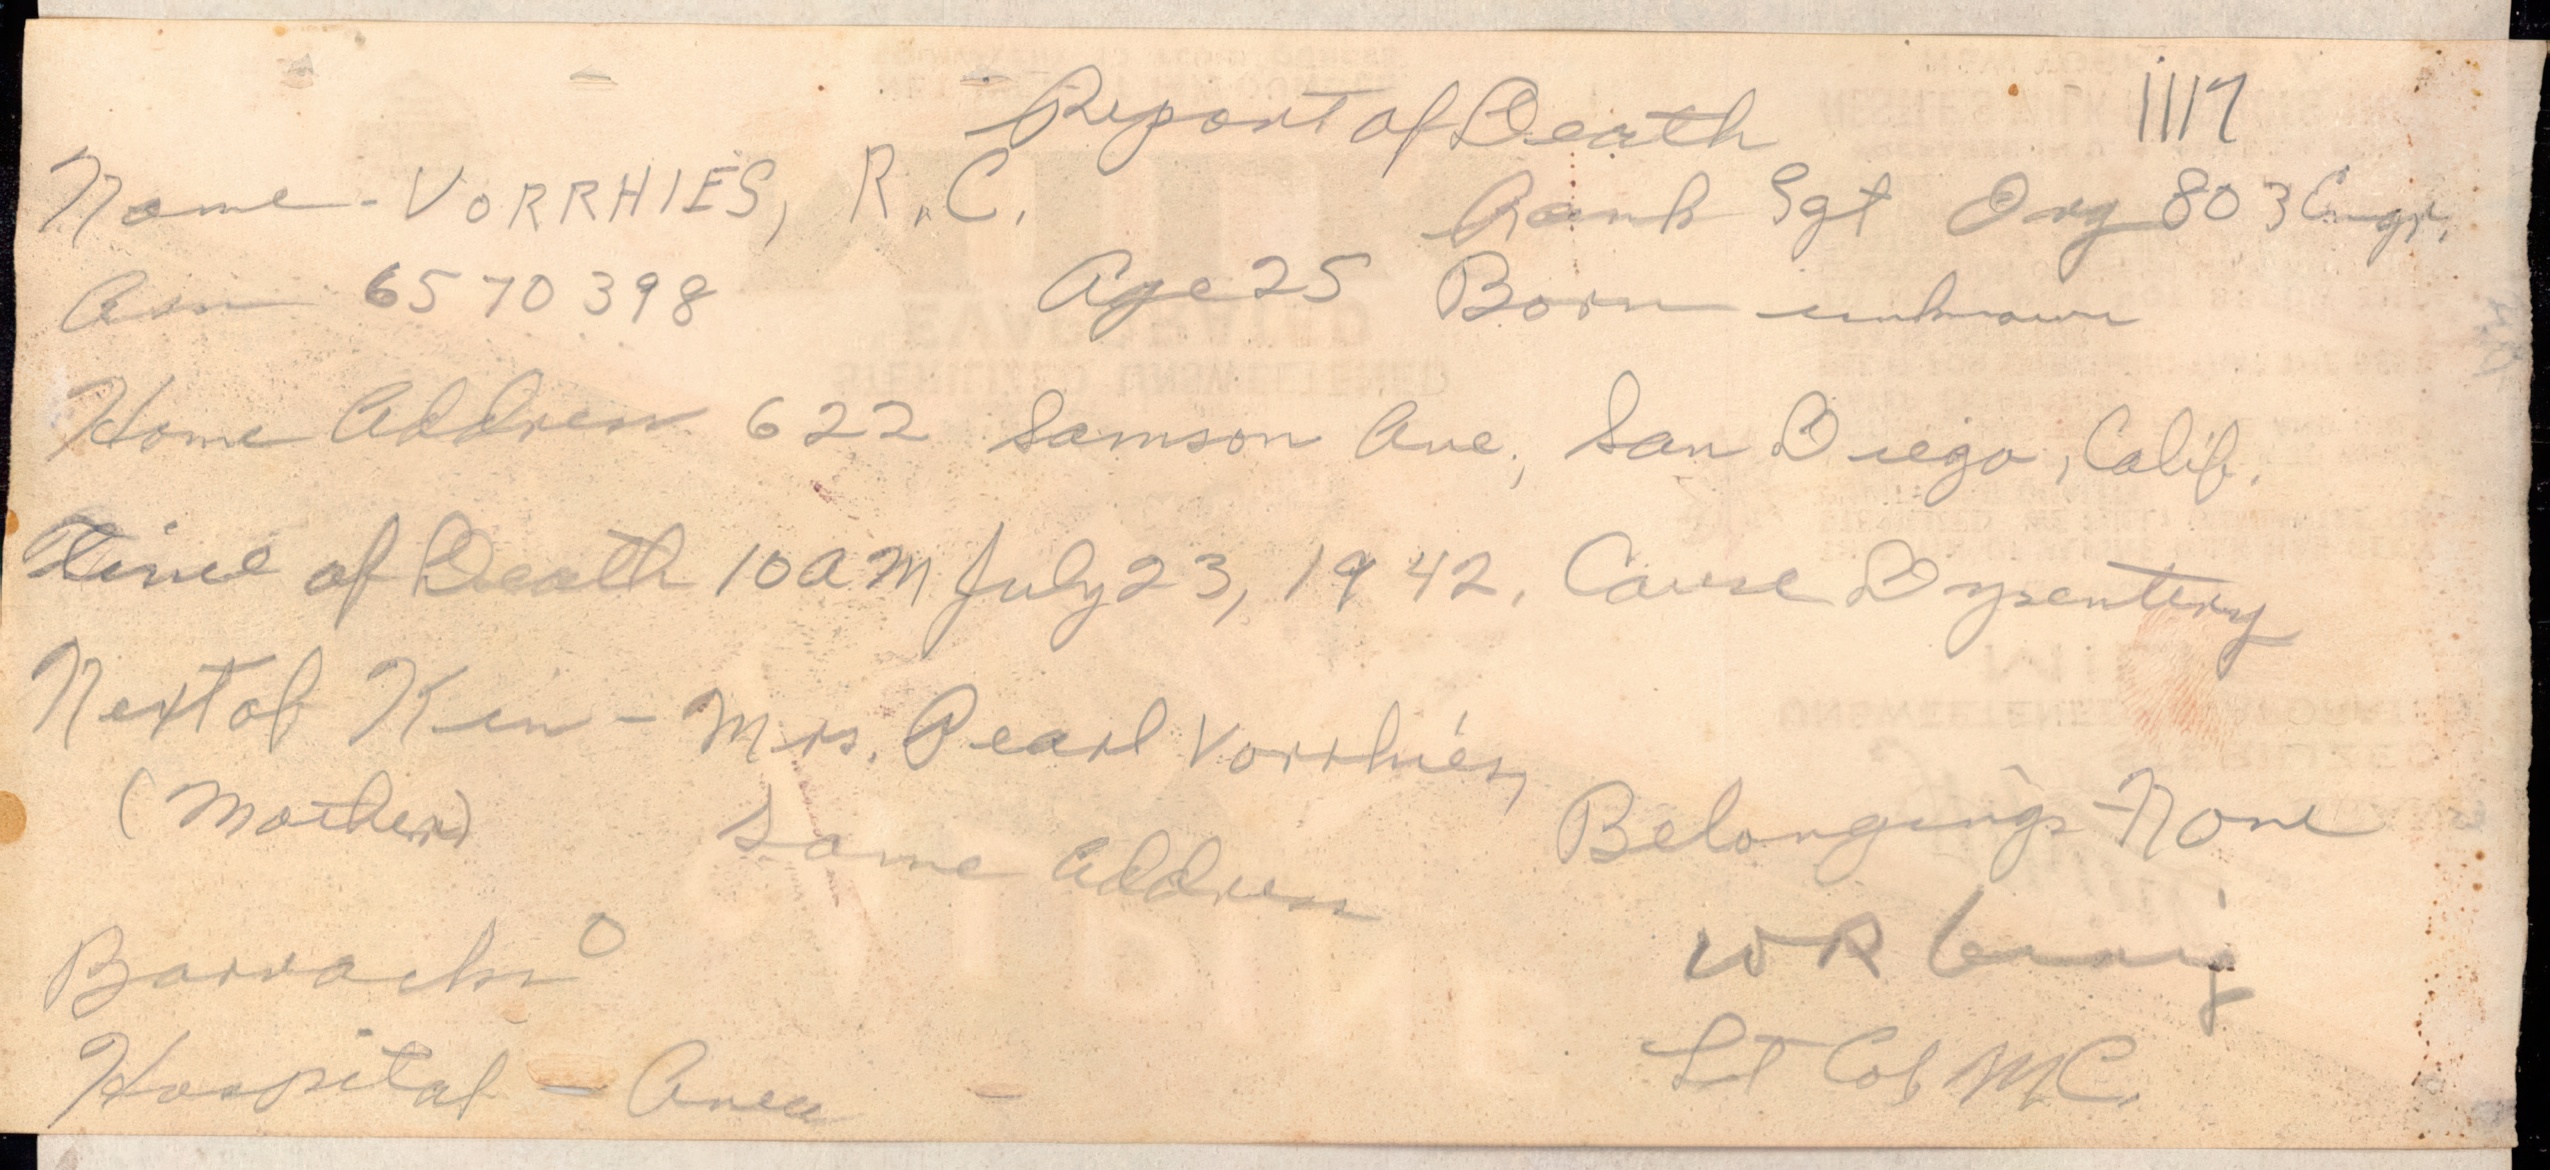 Report of Death 1117
Name - VORRHIES, R.C. Rank Sgt Org 803 Engr.
Asn 6570398 Age 25 Born unknown
Home Address 622 Samson Ave., San Diego, Calif.
Time of Death 10 AM July 23, 1942. Cause Dysentery
Next of Kin - Mrs. Pearl Vorrhies,
(Mother) Same Address Belongings - None
Barracks O
W R Craig
Hospital - Area
Lt Col MC.
EVAPORATED
STERILIZED UNSWEETENED